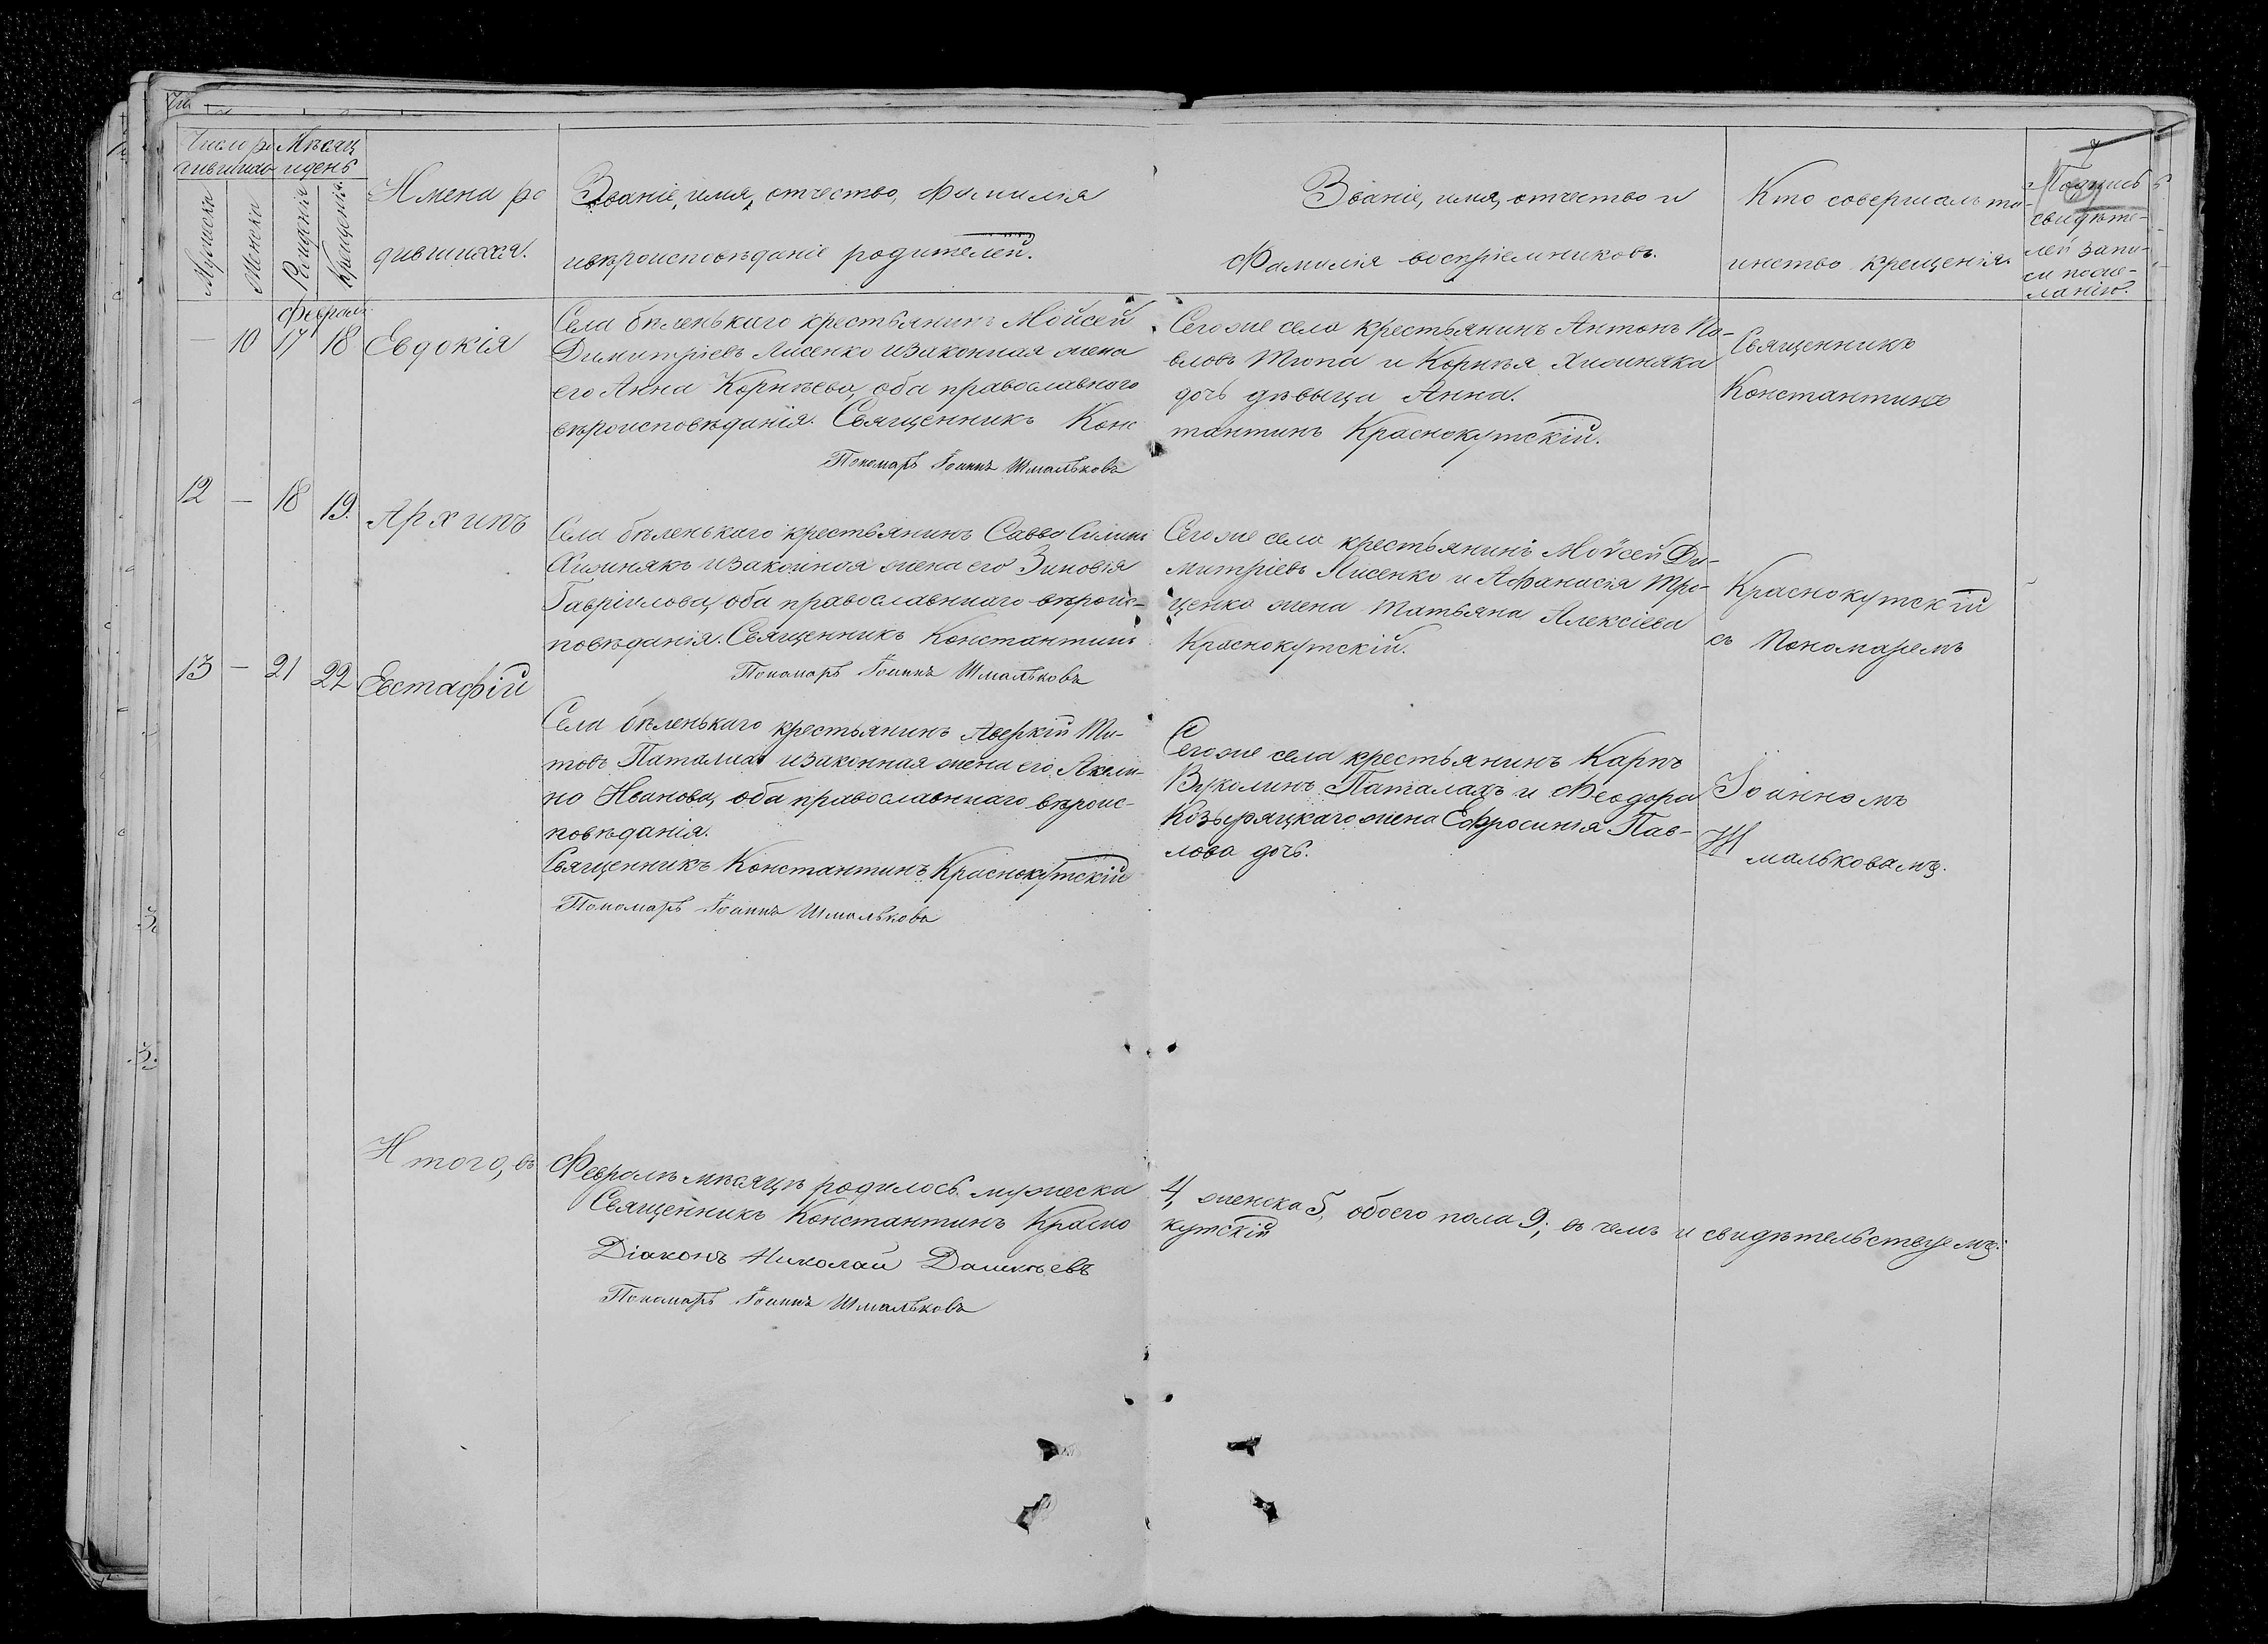 Число ро- Мѣсяц
дившихся и день
Мужска
Женска
Рожденія
Крещенія
Имена ро
дившихся.
Званіе, имя, отчество, Фамилія
и вѣроисповѣданіе родителей.
Званіе, имя, отчество и
Фамилія воспріемниковъ.
Кто совершалъ та-
инство крещенія.
Подпись
свидѣте-
лей запи-
си по же-
ланію.
Февраль
— 10 17 18 Евдокія
Села бѣленькаго крестьянинъ Мойсей
Димитріевъ Лисенко и законная жена
его Анна Корнѣева, оба православного
вѣроисповѣданія. Священникъ Конс
Пономарь Іоаннъ Шмальковъ
Сего же села крестьянинъ Антонъ Па-
вловъ Тюпа и Корнѣя Хижняка
дочь дѣвица Анна.
тантинъ Краснокутскій.
Священникъ
Константинъ
12 — 18 19. Архипъ
Села бѣленькаго крестьянинъ Савва Силинъ
Хижнякъ и законная жена его Зиновія
Гавріилова, оба православнаго вѣроис-
повѣданія. Священникъ Константинъ
Пономарь Іоаннъ Шмальковъ
Сего же села крестьянинъ Мойсей Ди-
митріевъ Лисенко и Афанасія Три-
щенко жена Татьяна Алексіева
Краснокутскій.
Краснокутскій
съ Пономаремъ
13 — 21 22 Евстафій
Села бѣленькаго крестьянинъ Аверкій Ти-
товъ Паталах и законная жена его Акили-
на Иванова, оба православнаго вѣроис-
повѣданія.
Священникъ Константинъ Краснокутскій
Пономарь Іоаннъ Шмальковъ
Сего же села крестьянинъ Карпъ
Вуколинъ Паталахъ и Феодора
Козыряцкаго жена Ефросинія Пав-
лова дочь.
Іоанномъ
Шмальковамъ.
Итого, въ Февралѣ мѣсяцѣ родилось мужеска 4, женска 5, обоего пола 9; въ чемъ и свидѣтельствуемъ:
Священникъ Константинъ Красно кутскій
Діаконъ Николай
Пономарь Іоаннъ Шмальковъ